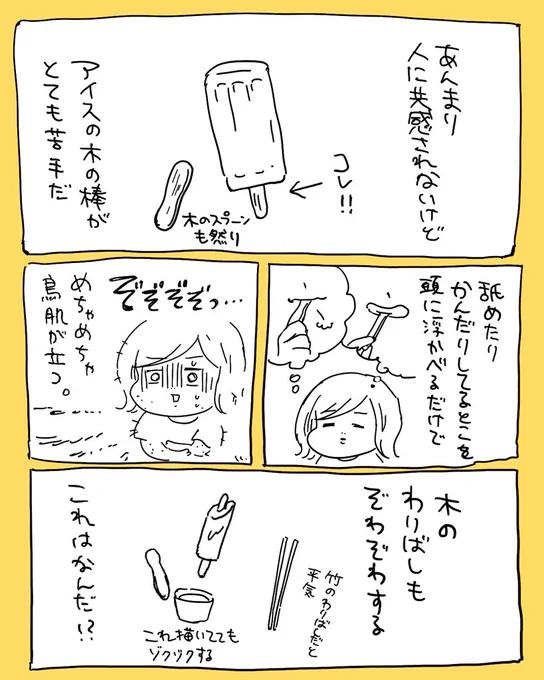 あんまり
人に共感されないけど
コレ!!
アイスの木の棒が
とても苦手だ
木のスプーン
も然り
舐めたり
かんだりしてるとこを
頭に浮かべるだけで
ぞぞぞぞっ…
めちゃめちゃ
鳥肌が立つ。
木の
わりばしも
ぞわぞわする
竹のわりばしだと
平気
これ描いてても
ゾクゾクする
これはなんだ!?